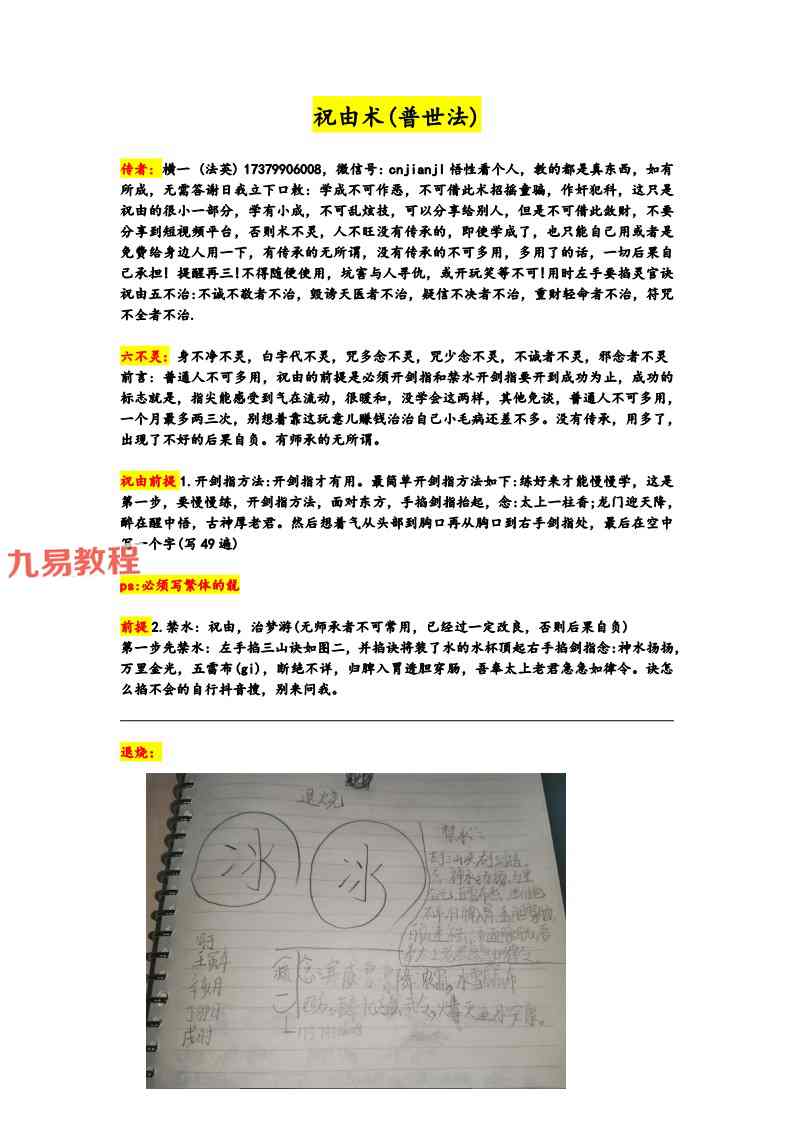 祝由术(普世法)
传者：横一 (法英) 17379906008，微信号：cnjianjl 悟性看个人，教的都是真东西，如有
所成，无需答谢日我立下口教：学成不可作恶，不可借此术招摇童骗，作奸犯科，这只是
祝由的很小一部分，学有小成，不可乱炫技，可以分享给别人，但是不可借此敛财，不要
分享到短视频平台，否则术不灵，人不旺没有传承的，即使学成了，也只能自己用或者是
免费给身边人用一下，有传承的无所谓，没有传承的不可多用，多用了的话，一切后果自
己承担！提醒再三!不得随便使用，坑害与人寻仇，或开玩笑等不可!用时左手要掐灵官诀
祝由五不治:不诚不敬者不治，毁谤天医者不治，疑信不决者不治，重财轻命者不治，符咒
不全者不治.
六不灵：身不净不灵，白字代不灵，咒多念不灵，咒少念不灵，不诚者不灵，邪念者不灵
前言：普通人不可多用，祝由的前提是必须开剑指和禁水开剑指要开到成功为止，成功的
标志就是，指尖能感受到气在流动，很暖和，没学会这两样，其他免谈，普通人不可多用，
一个月最多两三次，别想着靠这玩意儿赚钱治治自己小毛病还差不多。没有传承，用多了，
出现了不好的后果自负。有师承的无所谓。
祝由前提 1.开剑指方法:开剑指才有用。最简单开剑指方法如下:练好来才能慢慢学，这是
第一步，要慢慢练，开剑指方法，面对东方，手掐剑指抬起，念:太上一柱香;龙门迎天降，
醉在醒中悟，古神厚老君。然后想着气从头部到胸口再从胸口到右手剑指处，最后在空中
写一个字(写 49 遍)
九易教程
ps:必须写繁体的靝
前提 2.禁水：祝由，治梦游(无师承者不可常用，已经过一定改良，否则后果自负)
第一步先禁水：左手掐三山诀如图二，并掐诀将装了水的水杯顶起右手掐剑指念:神水扬扬，
万里金光，五雷布(gi)，断绝不详，归脾入胃透胆穿肠，吾奉太上老君急急如律令。诀怎
么掐不会的自行抖音搜，别来问我。
退烧：
退烧
冰 冰
禁水：
壬寅年
戌时